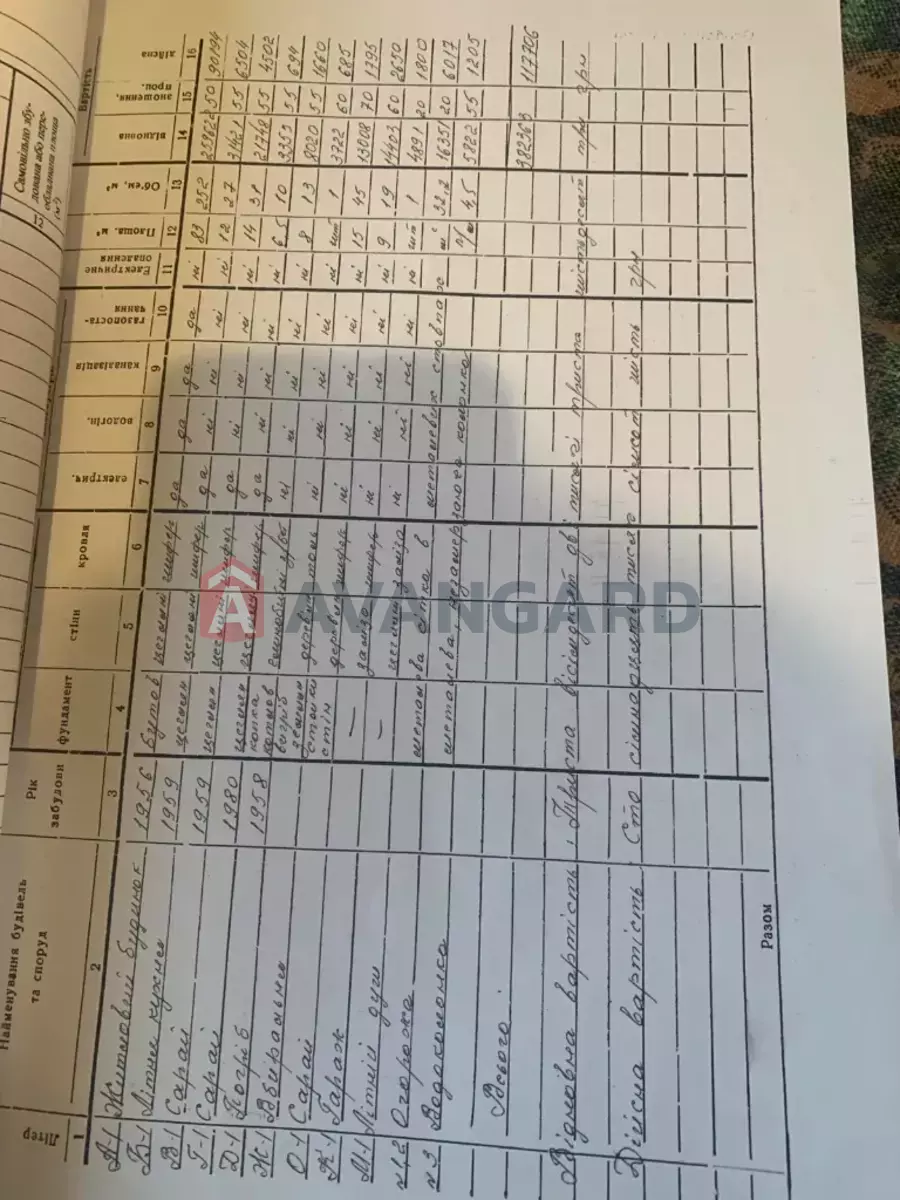 Самовільно збу-
дована або пере-
обладнана площа
(м²)
12
Літер
Найменування будівель
та споруд
Рік
забудови
фундамент
стіни
кровля
електрич.
водогін.
каналізація
газопоста-
чання
Електричне
опалення
Площа. м²
Об'єм, м³
Вартість
відновна
зношення,
проц.
дійсна
1 2 3 4 5 6 7 8 9 10 11 12 13 14 15 16
А-1 Житловий будинок 1956 бутов цегляни шифер да да да да ні 83 252 50 90194
Б-1 Літня кухня 1959 цегляни цегляни шифер да ні ні ні ні 12 27 31421 55 6504
В-1 Сарай 1959 цеглян шифер да ні ні ні ні 14 31 21748 55 4502
Г-1 Сарай 1980 цеглян шифер да ні ні ні ні 6,5 10 3353 55 694
Д-1 Погріб 1958 копка ні ні ні ні ні 8 13 8020 55 1660
Ж-1 Вбиральня ні ні ні ні ні шт 1 3722 60 685
О-1 Сарай стовпи шифер ні ні ні ні ні 15 45 13008 70 1795
К-1 Гараж — залізо ні ні ні ні ні 9 19 14403 60 2650
М-1 Літній душ — цегляни залізо ні ні ні ні ні шт 1 4891 20 1800
№1,2 Огорожа металева сітка в металевих стовпах м² 32,2 16351 20 6017
№3 Водоколонка металева, незамерзаюча колонка п/м 4,5 5822 55 1205
Всього 382363 117706
Відновна вартість, Триста вісімдесят дві тисячі триста шістьдесят три грн
Дійсна вартість Сто сімнадцять тисяч сімсот шість грн
Разом
AVANGARD